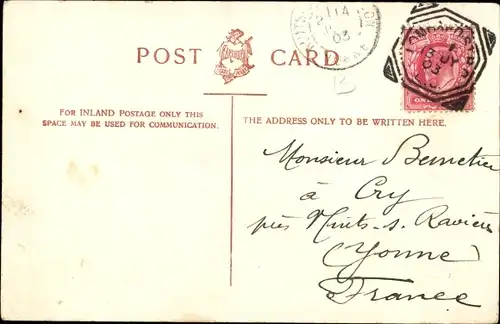 POST CARD
FOR INLAND POSTAGE ONLY THIS
SPACE MAY BE USED FOR COMMUNICATION.
THE ADDRESS ONLY TO BE WRITTEN HERE.
Monsieur
à Cry
près Nuits-s. Ravières
(Yonne)
France